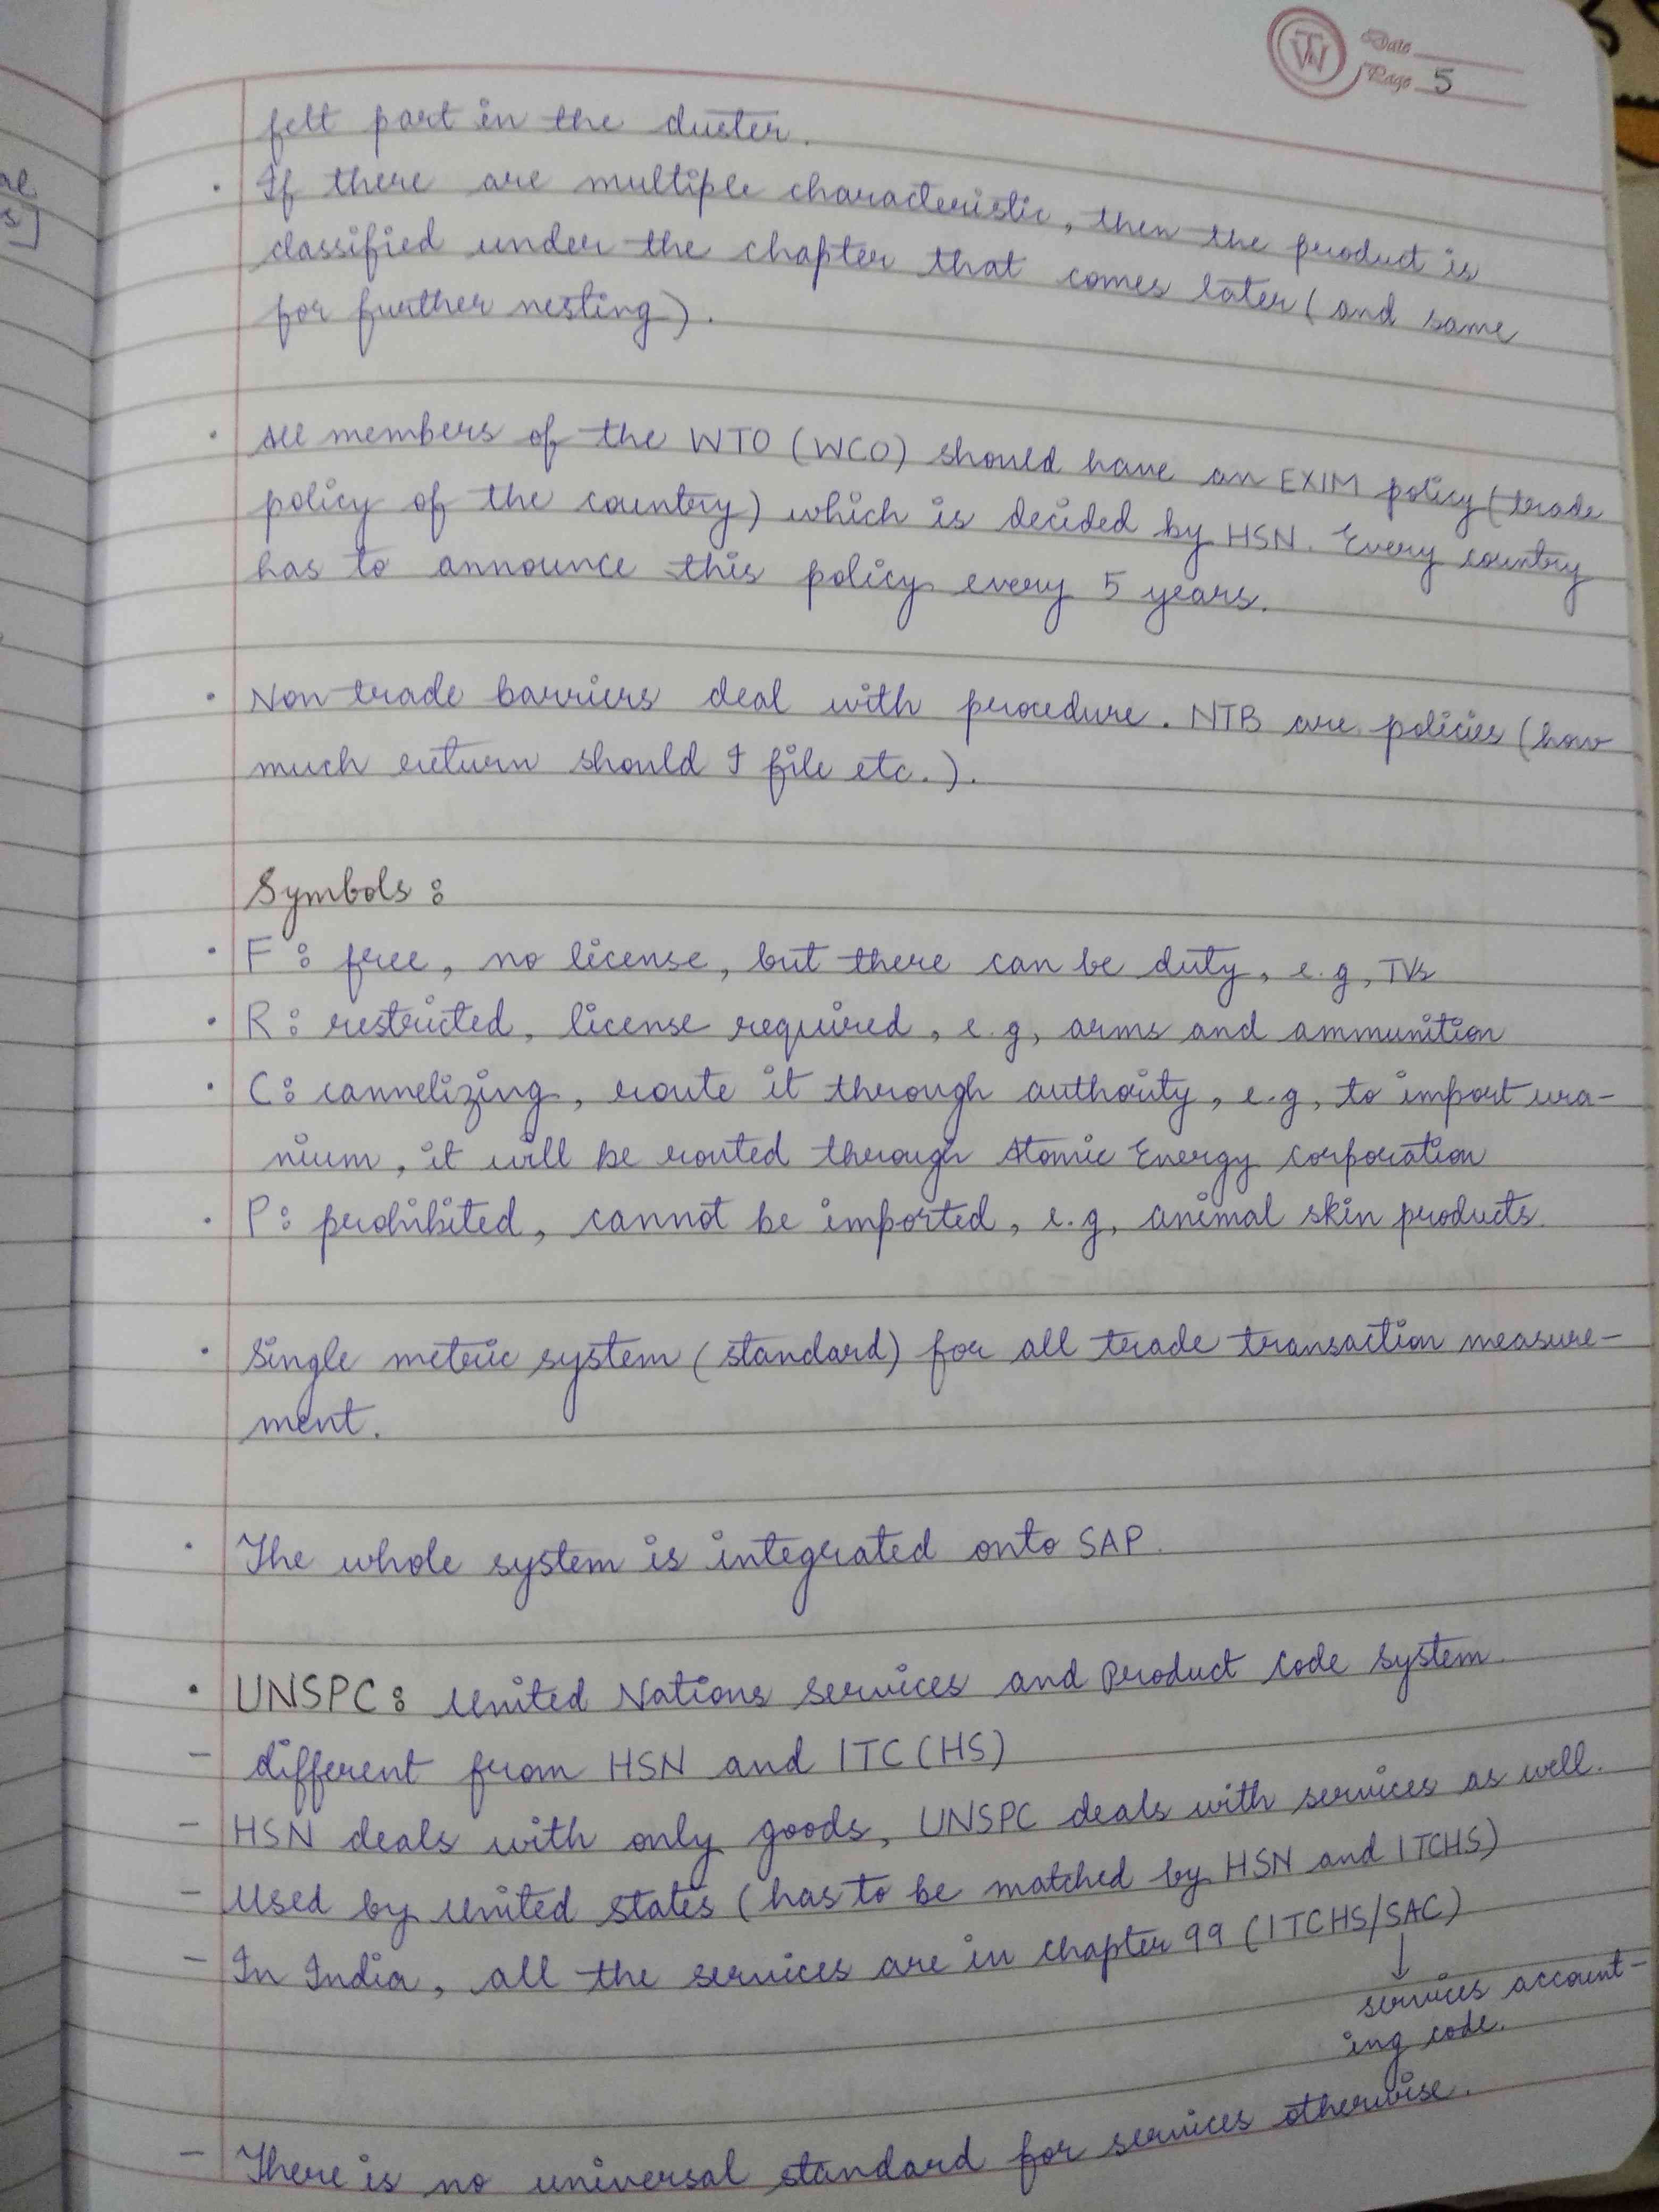 Date
Page 5
al
s]
felt part in the duster.
· If there are multiple characteristic, then the product is
classified under the chapter that comes later (and same
for further nesting).
· All members of the WTO (WCO) should have an EXIM policy (trade
policy of the country) which is decided by HSN. Every country
has to announce this policy every 5 years.
· Non trade barriers deal with procedure. NTB are policies (how
much return should I file etc.).
Symbols:
· F: free, no license, but there can be duty, e.g, TVs
· R: restricted, license required, e.g, arms and ammunition
· C: cannelizing, route it through authority, e.g, to import ura-
nium, it will be routed through Atomic Energy corporation
· P: prohibited, cannot be imported, e.g, animal skin products.
· Single metric system (standard) for all trade transaction measure-
ment.
· The whole system is integrated onto SAP.
· UNSPC: United Nations Services and Product Code System.
- different from HSN and ITC (HS)
- HSN deals with only goods, UNSPC deals with services as well.
- Used by United States (has to be matched by HSN and ITCHS)
- In India, all the services are in chapter 99 (ITCHS/SAC)
↓
services account-
ing code.
- There is no universal standard for services otherwise.